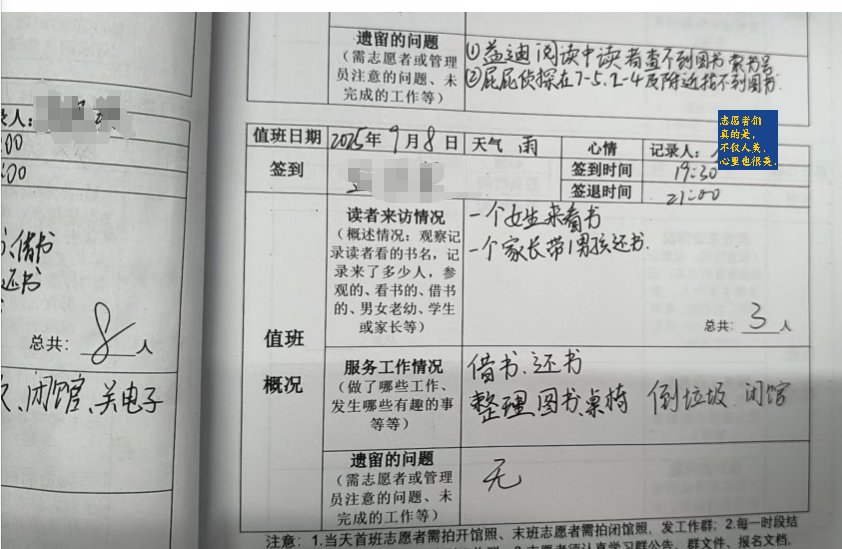 遗留的问题
（需志愿者或管理
员注意的问题、未
完成的工作等）
①益迪阅读中读者查不到图书索书号
②屁屁侦探在7-5.2-4及附近找不到图书.
录人:
:00
:00
值班日期 2025年9月8日 天气 雨 心情 记录人:
签到 签到时间 19:30
签退时间 21:00
志愿者们
真的是,
不仅人美,
心里也很美.
借书
还书
总共: 8 人
、闭馆、关电子
值班
概况
读者来访情况
（概述情况：观察记
录读者看的书名，记
录来了多少人，参
观的、看书的、借书
的、男女老幼、学生
或家长等）
一个女生来看书
一个家长带1男孩还书.
总共: 3 人
服务工作情况
（做了哪些工作、
发生哪些有趣的事
等等）
借书、还书
整理图书、桌椅 倒垃圾、闭馆
遗留的问题
（需志愿者或管理
员注意的问题、未
完成的工作等）
无
注意：1.当天首班志愿者需拍开馆照、末班志愿者需拍闭馆照，发工作群；2.每一时段结
志愿者须认真学习群公告、群文件、报名文档，